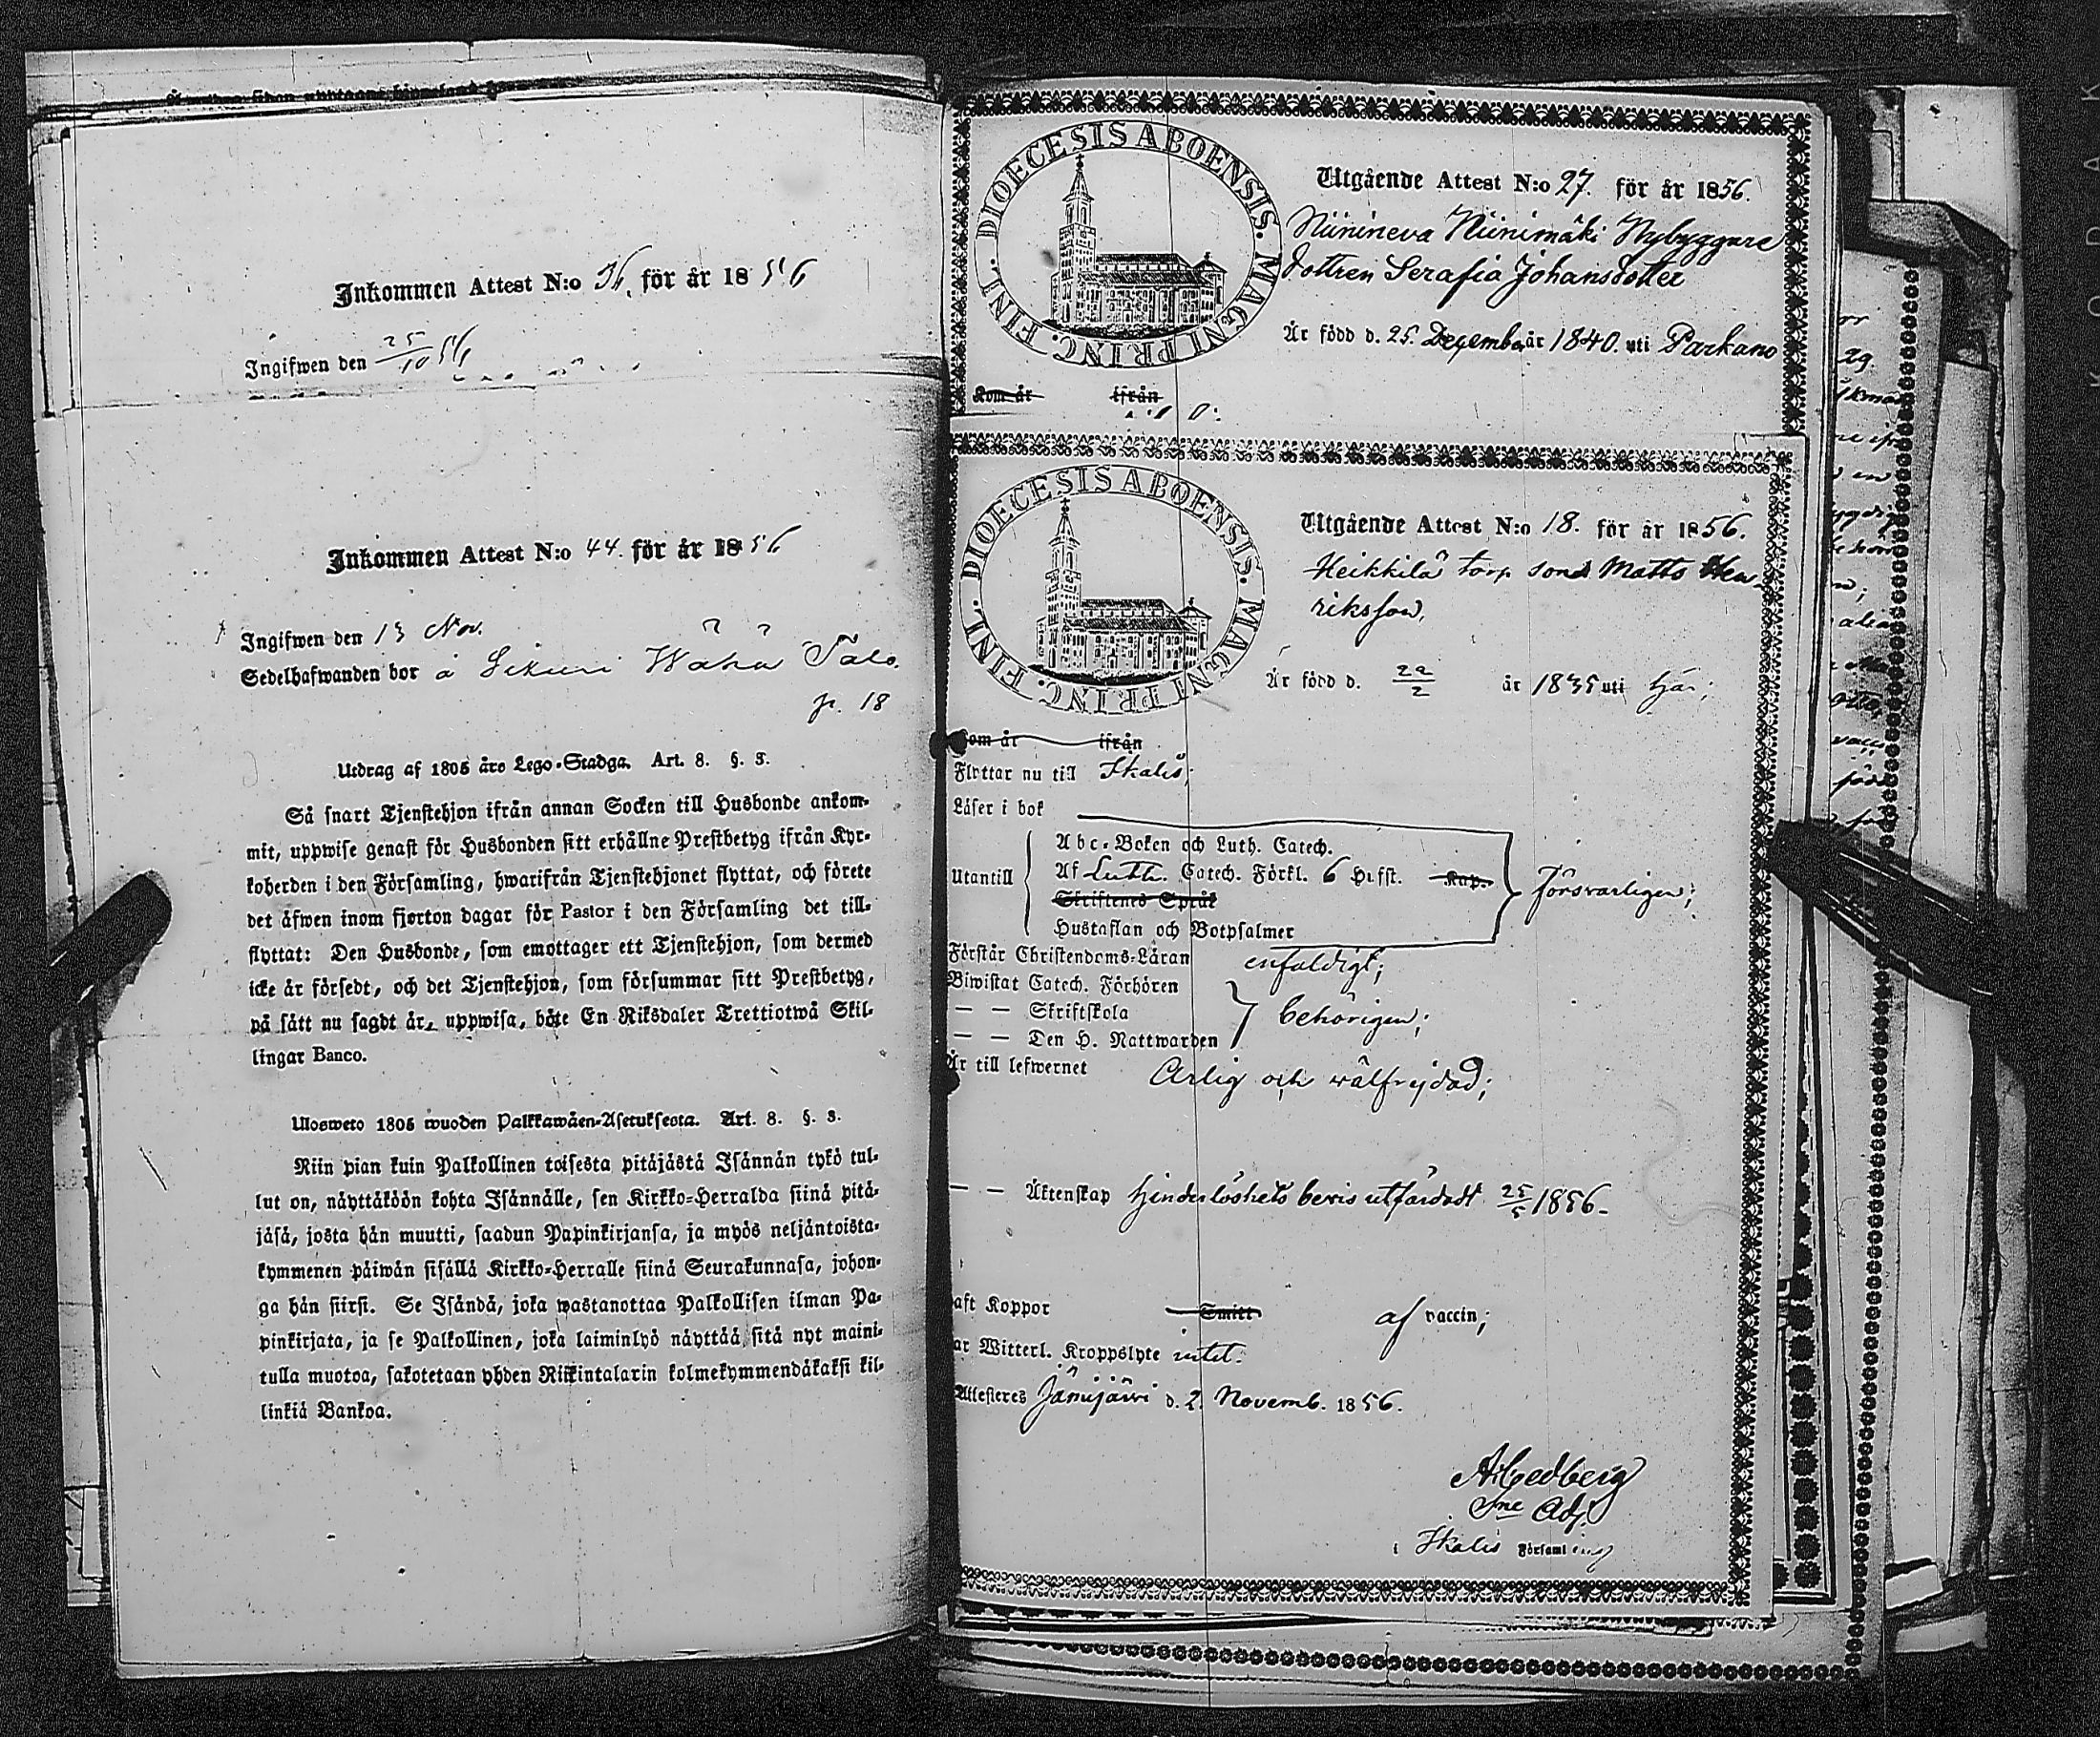 Inkommen Attest N:o 36. för år 1856
Ingifwen den 25/10 56
Inkommen Attest N:o 44. för år 1856
Ingifwen den 13 Nov.
Sedelhafwanden bor å Sikuri Wähä Talo.
p. 18
Utdrag af 1805 års Lego-Stadga. Art. 8. §. 3.
Så snart Tjenstehjon ifrån annan Socken till Husbonde ankom-
mit, uppwise genast för Husbonden sitt erhållne Prestbetyg ifrån Kyr-
koherden i den Församling, hwarifrån Tjenstehjonet flyttat, och förete
det äfwen inom fjorton dagar för Pastor i den Församling det till-
flyttat: Den Husbonde, som emottager ett Tjenstehjon, som dermed
icke är försedt, och det Tjenstehjon, som försummar sitt Prestbetyg,
på sätt nu sagdt är, uppwisa, böte En Riksdaler Trettiotwå Skil-
lingar Banco.
Ulosweto 1805 wuoden Palkkawäen-Asetuksesta. Art. 8. §. 3.
Niin pian kuin Palkollinen toisesta pitäjästä Isännän tykö tul-
lut on, näyttäköön kohta Isännälle, sen Kirkko-Herralda siinä pitä-
jäsä, josta hän muutti, saadun Papinkirjansa, ja myös neljäntoista-
kymmenen päiwän sisällä Kirkko-Herralle siinä Seurakunnasa, johon-
ga hän siirsi. Se Isändä, joka wastanottaa Palkollisen ilman Pa-
pinkirjata, ja se Palkollinen, joka laiminlyö näyttää sitä nyt maini-
tulla muotoa, sakotetaan yhden Riikintalarin kolmekymmendäkaksi kil-
linkiä Bankoa.
DIOECESIS ABOENSIS. MAGNI PRINC. FINL.
Utgående Attest N:o 27. för år 1856.
Niinineva Niinimäki Nybyggare
dottren Serafia Johansdotter
Är född d. 25. Dezember år 1840. uti Parkano
Kom år ifrån
DIOECESIS ABOENSIS. MAGNI PRINC. FINL.
Utgående Attest N:o 18. för år 1856.
Heikkilä torp sons Matts Hen-
riksson,
Är född d. 22/2 år 1835 uti här;
Kom år ifrån
Flyttar nu till Ikalis;
Läser i bok
Abc-Boken och Luth. Catech.
Utantill Af Luth. Catech. Förkl. 6 Hfst. Kap.
Skriftenes Språk
försvarligen;
Hustaflan och Botpsalmer
Förstår Christendoms-Läran enfaldigt;
Biwistat Catech. Förhören
— — Skriftskola behörigen;
— — Den H. Nattwarden
Är till lefwernet Ärlig och wälfrejdad;
— — Äktenskap Hinderlöshets bevis utfärdadt 25/5 1856.
aft Koppor Smitt af vaccin;
ar Witterl. Kroppslyte intet.
Attesteres Jämijärvi d. 2. Novemb. 1856.
A. Cedberg
Sne Adj.
i Ikalis Församling